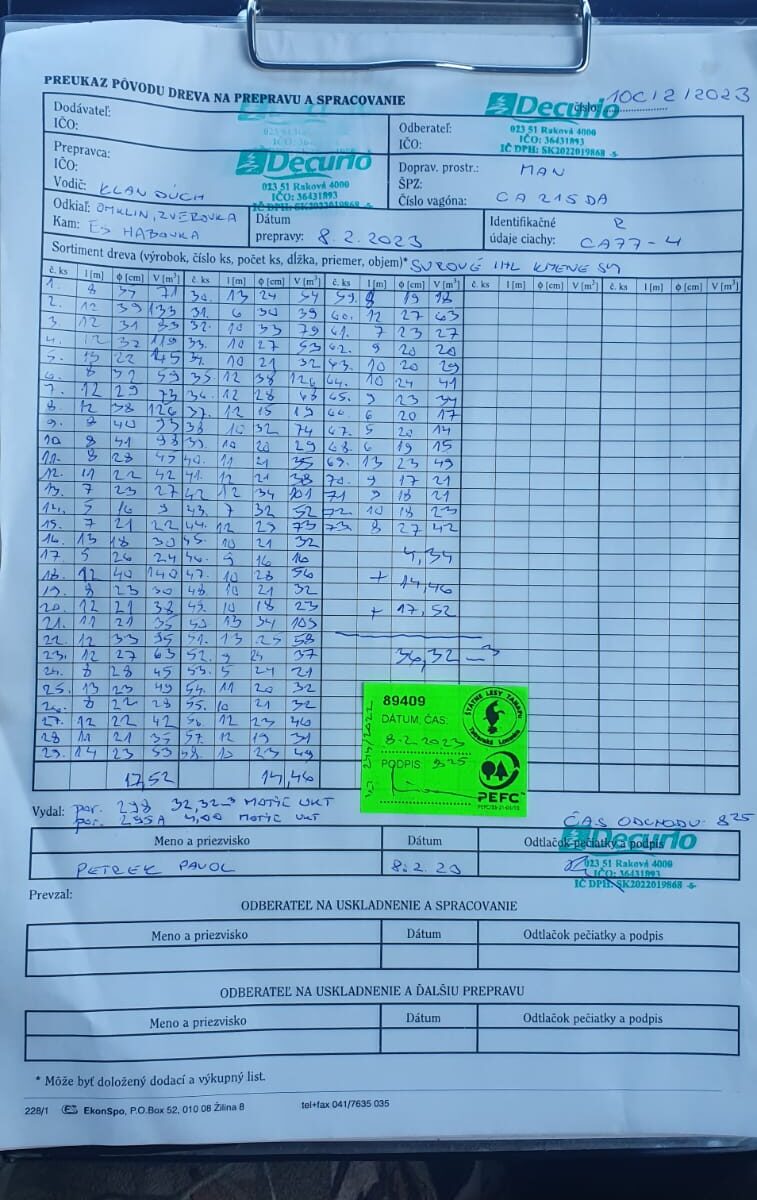 PREUKAZ PÔVODU DREVA NA PREPRAVU A SPRACOVANIE
číslo 10C/2/2023
Dodávateľ:
IČO:
Decurio
023 51 Raková 4000
IČO: 36431893
IČ DPH: SK2022019868 -5-
Odberateľ:
IČO:
Prepravca:
IČO:
Vodič: KLAN DÚCH
Decurio
023 51 Raková 4000
IČO: 36431893
Doprav. prostr.: MAN
ŠPZ:
Číslo vagóna: CA 215DA
Odkiaľ: OMKLIN, ZVEROVKA
Kam: ES HABOVKA
Dátum
prepravy: 8.2.2023
Identifikačné
údaje ciachy: CA77-4
Sortiment dreva (výrobok, číslo ks, počet ks, dĺžka, priemer, objem)* SUROVÉ IHL KMENE SM
č. ks l [m] ϕ [cm] V [m³] č. ks l [m] ϕ [cm] V [m³] č. ks l [m] ϕ [cm] V [m³] č. ks l [m] ϕ [cm] V [m³] č. ks l [m] ϕ [cm] V [m³]
1. 8 37 71 30. 13 24 54 59. 8 19 18
2. 12 39 133 31. 6 30 39 60. 12 27 63
3. 12 31 83 32. 10 33 79 61. 7 23 27
4. 12 37 119 33. 10 27 53 62. 9 20 20
5. 13 22 45 34. 10 21 32 63. 10 20 29
6. 8 32 59 35. 12 38 126 64. 10 24 41
7. 12 29 73 36. 12 28 68 65. 9 23 34
8. 12 38 126 37. 12 15 19 66. 6 20 17
9. 8 40 93 38 10 32 74 67. 5 20 14
10 8 41 98 39. 10 20 29 68. 6 19 15
11. 8 28 45 40. 11 21 35 69. 13 23 49
12. 11 22 42 41. 12 21 38 70. 9 17 21
13. 7 23 27 42 12 34 101 71 9 18 21
14. 5 16 9 43. 7 32 52 72. 10 18 23
15. 7 21 22 44. 12 29 73 73 8 27 42
16. 13 18 30 45. 10 21 32
17 5 26 24 46. 9 16 16 4,34
18. 12 40 140 47. 10 28 56 + 14,46
19. 8 23 30 48 10 21 32
20. 12 21 38 49. 10 18 23 + 17,52
21. 11 21 35 50 13 34 109
22. 12 33 95 51. 13 25 58
23. 12 27 63 52. 9 24 37 36,32 m³
24. 8 28 45 53. 5 24 21
25. 13 23 49 54. 11 20 32
26. 8 22 28 55. 10 21 32
27. 12 22 42 56 12 23 46
28 11 21 35 57. 12 19 31
29. 14 23 53 58. 10 23 49
17,52 14,46
89409
DÁTUM, ČAS:
8.2.2023
PODPIS: 8 25
ŠTÁTNE LESY TANAPU
Tatranská Lomnica
PEFC™
Vydal: por. 298 32,32m³ MOTIC UKT
por. 295A 4,00 MOTIC UKT
ČAS ODCHODU: 8 25
Meno a priezvisko Dátum Odtlačok pečiatky a podpis
PETREK PAVOL 8.2.23
Decurio
023 51 Raková 4000
IČO: 36431893
IČ DPH: SK2022019868 -5-
Prevzal:
ODBERATEĽ NA USKLADNENIE A SPRACOVANIE
Meno a priezvisko Dátum Odtlačok pečiatky a podpis
ODBERATEĽ NA USKLADNENIE A ĎALŠIU PREPRAVU
Meno a priezvisko Dátum Odtlačok pečiatky a podpis
* Môže byť doložený dodací a výkupný list.
228/1 EkonSpo, P.O.Box 52, 010 08 Žilina 8 tel+fax 041/7635 035